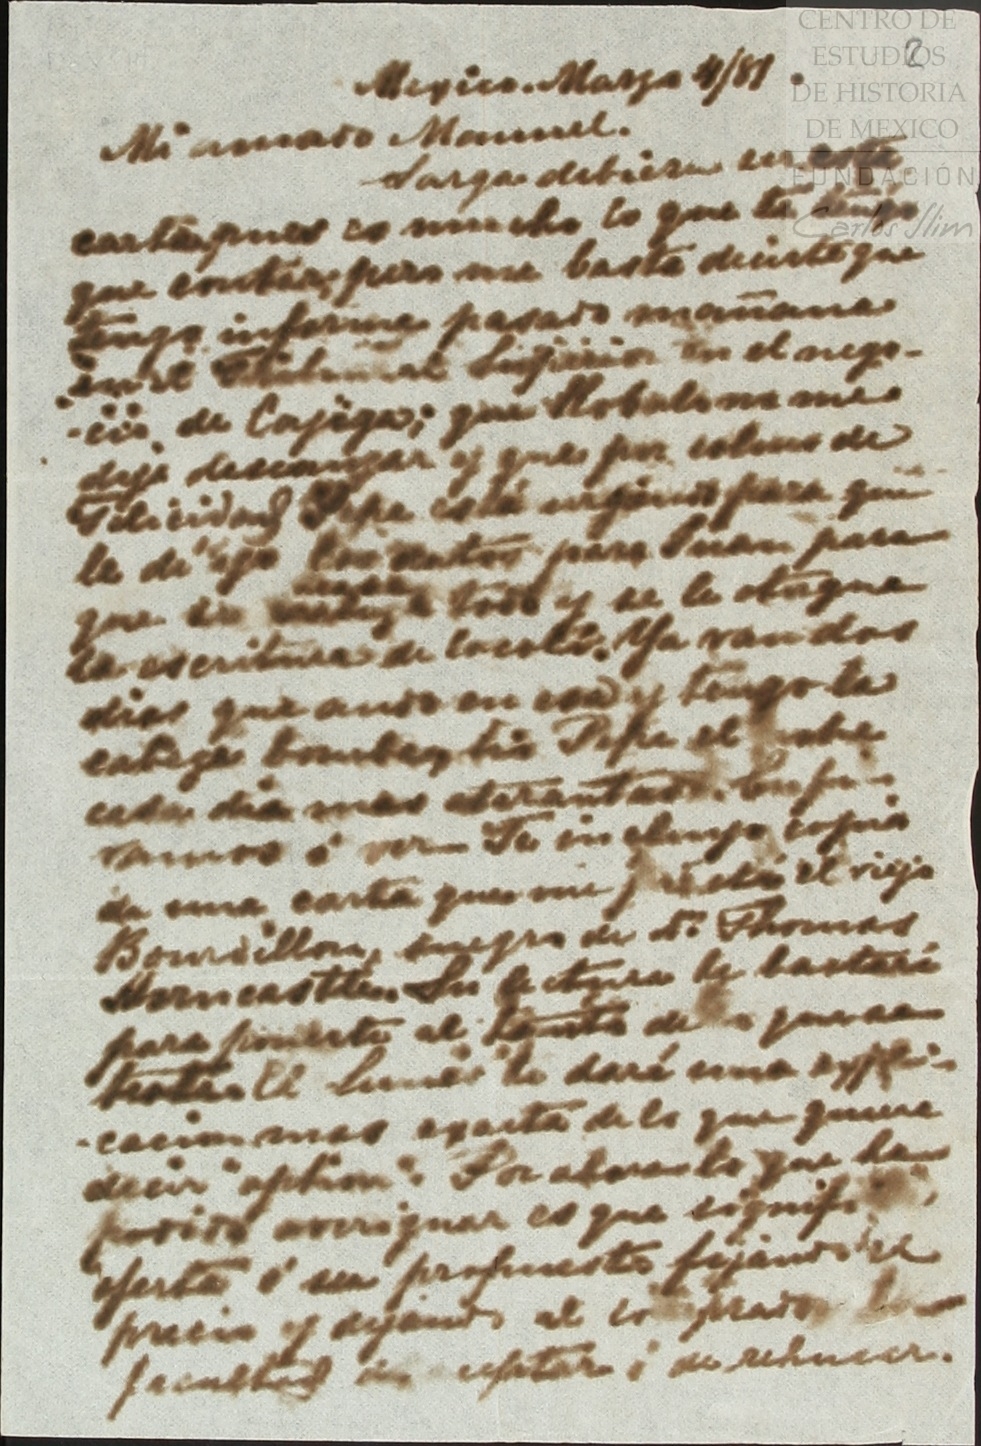 CENTRO DE
ESTUDIOS
DE HISTORIA
DE MEXICO
FUNDACIÓN
Carlos Slim
2
Mexico. Marzo 4/81.
Mi amado Manuel.
Larga debiera ser esta
carta, pues es mucho lo que te tengo
que contar, pero me basta decirte que
tengo informe pasado mañana
en el Tribunal Superior en el nego-
-cio de Cajiga; que Robalo no me
deja descansar y que por colmo de
felicidad Pepe está para que
le dé yo los para Juan para
que todo y se le otorgue
la escritura de Ya van dos
dias que ando en eso y tengo la
cabeza bomba, tio Pepe el pobre
cada dia mas atarantado.
vamos á ver. Te incluyo copia
de una carta que me prestó el viejo
Bourdillon, suegro de Dn. Thomas
Horncastle. Su lectura te bastará
para ponerte al tanto de lo que se
trata. El Lunes te daré una expli-
-cacion mas exacta de lo que quiere
decir "option". Por ahora lo que he
podido averiguar es que
oferta ó sea propuesta fijando el
precio y dejando al comprador la
facultad de aceptar ó de rehusar.